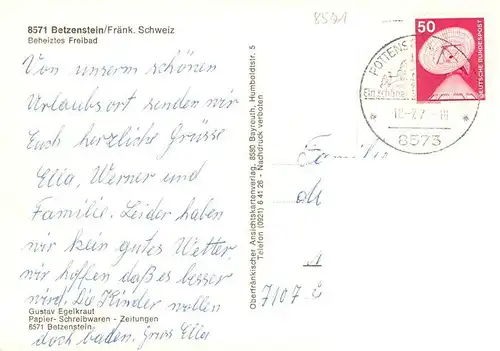 8571 Betzenstein/Fränk. Schweiz
Beheiztes Freibad
Von unserm schönen
Urlaubsort senden wir
Euch herzliche Grüsse
Ella, Werner und
Familie. Leider haben
wir kein gutes Wetter,
wir hoffen daß es besser
wird. Die Kinder wollen
doch baden. Gruss Ella
Gustav Egelkraut
Papier- Schreibwaren - Zeitungen
8571 Betzenstein
Oberfränkischer Ansichtskartenverlag, 8580 Bayreuth, Humboldtstr. 5
Telefon (0921) 6 41 26 - Nachdruck verboten
8571
50
DEUTSCHE BUNDESPOST
POTTENS
Ein schöner
8573
Familie
7107